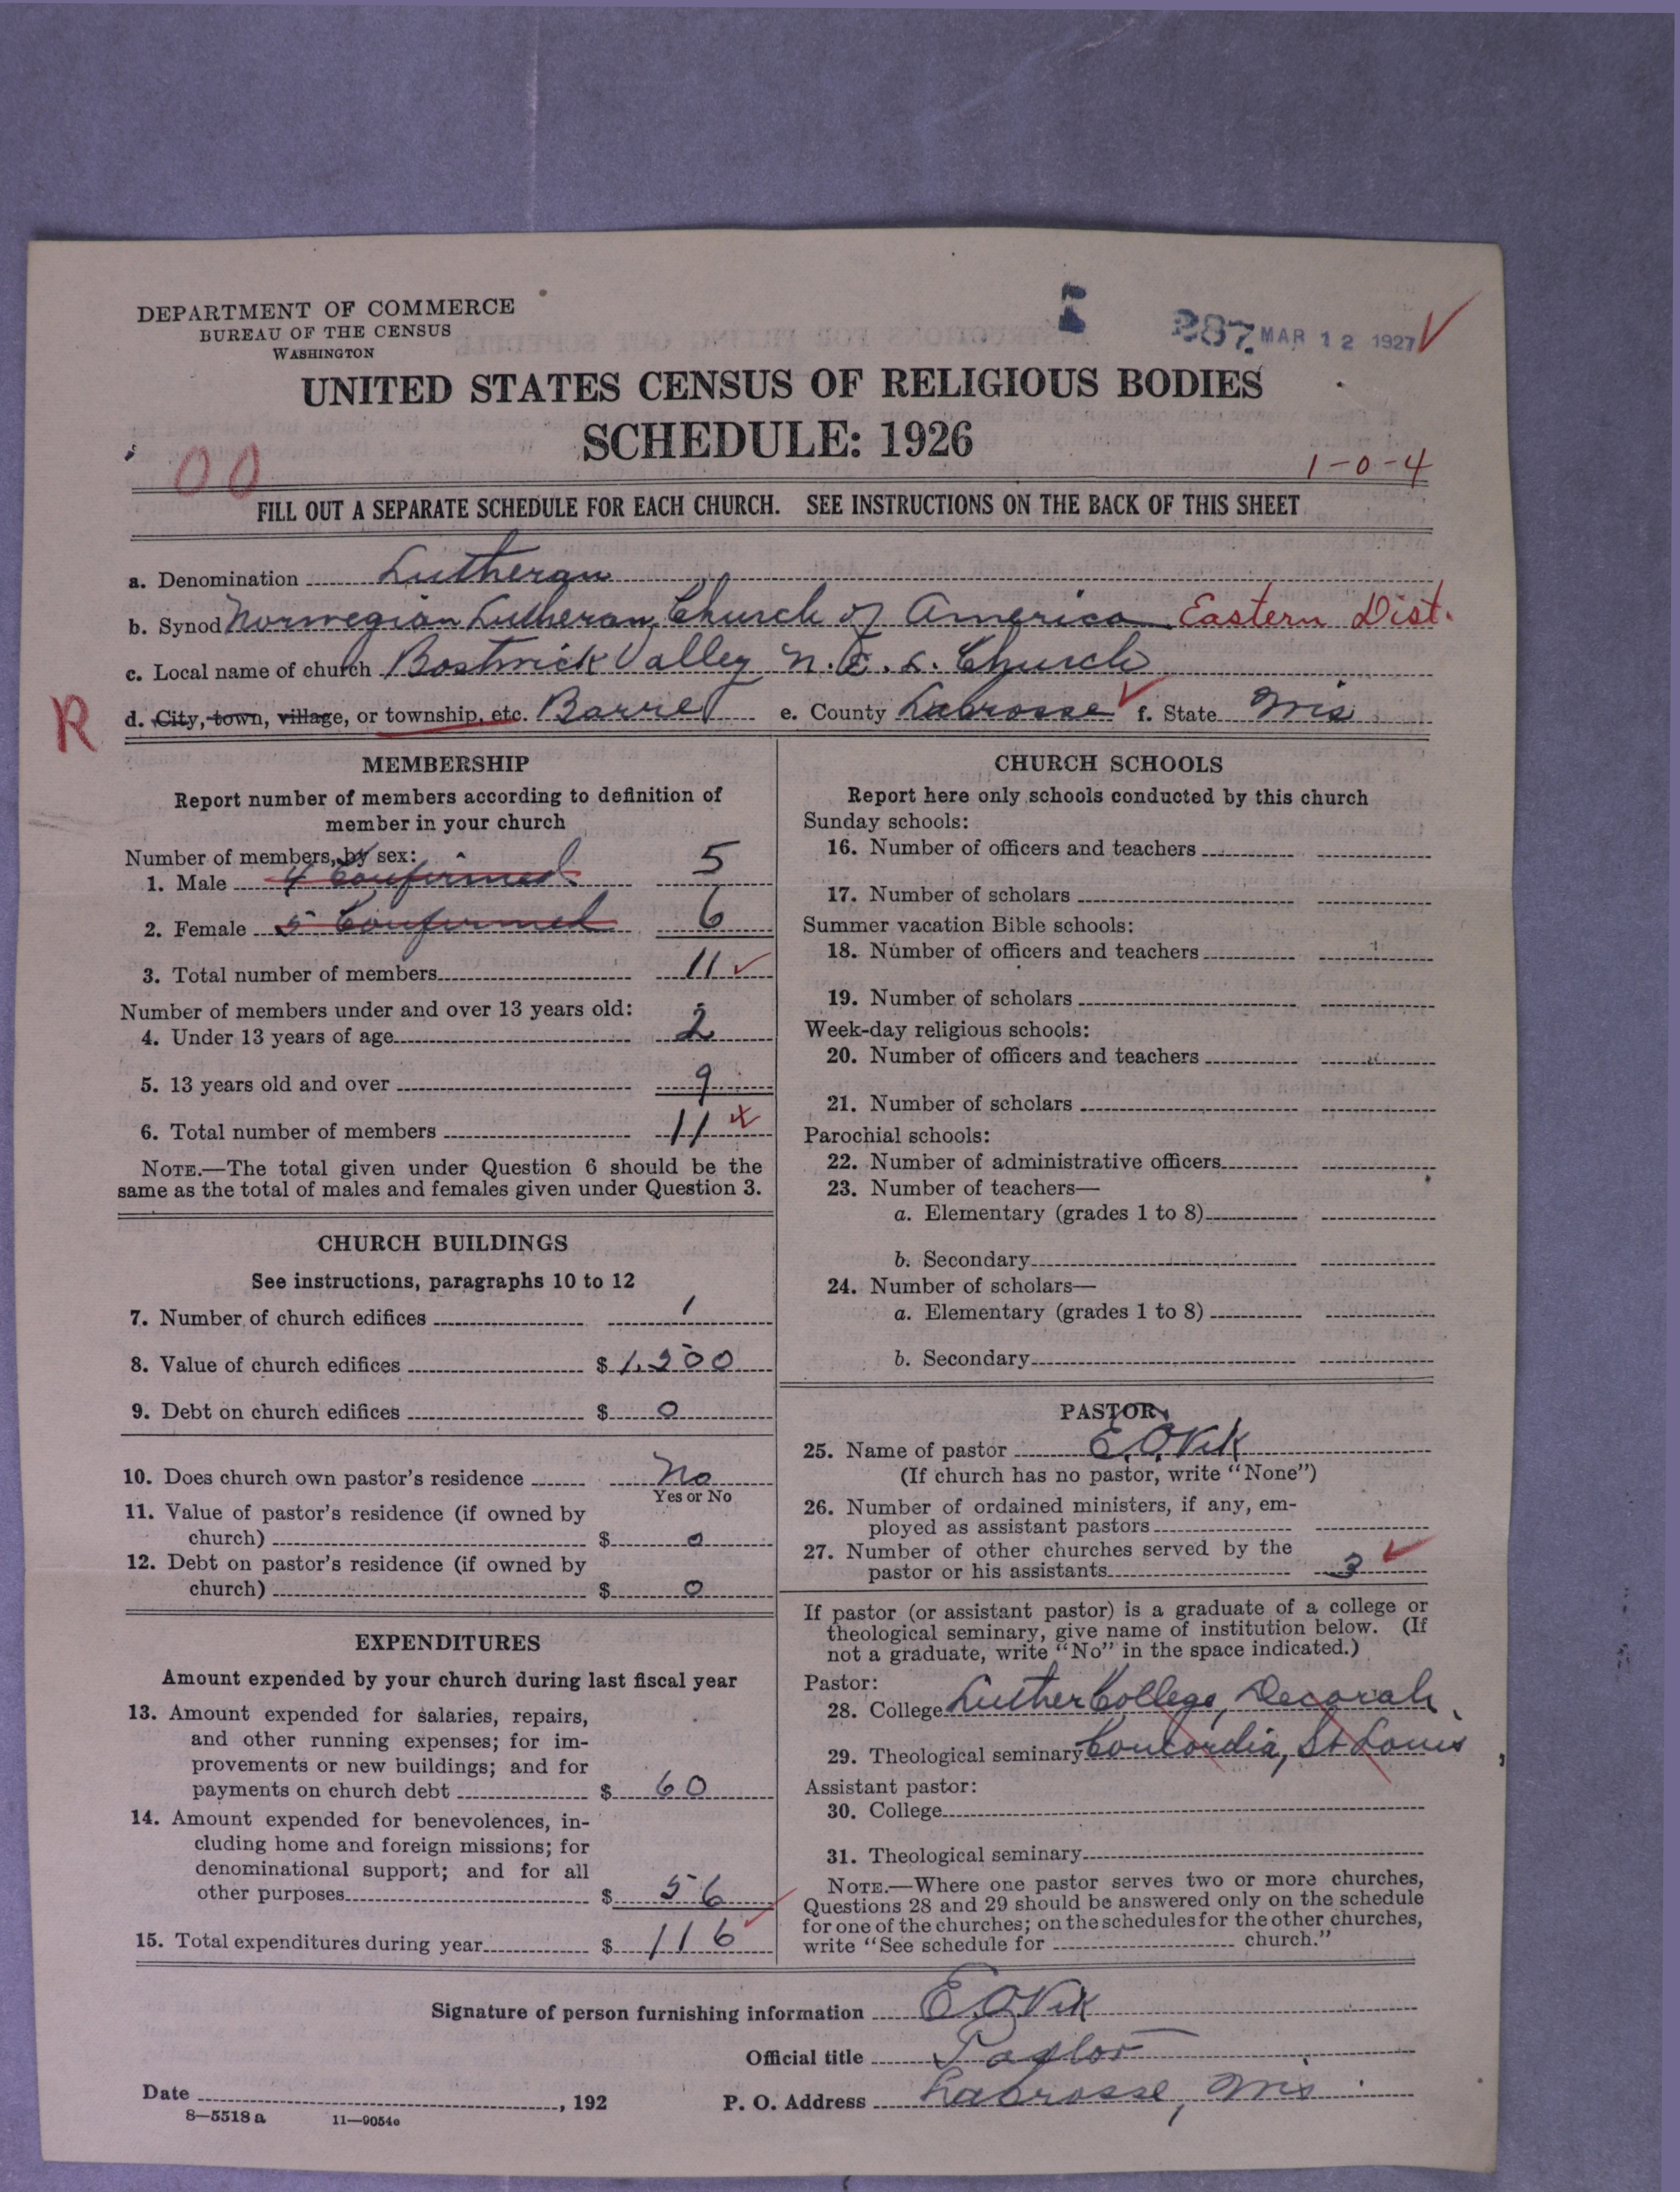 DEPARTMENT OF COMMERCE
BUREAU OF THE CENSUS
WASHINGTON
287. MAR 12 1927
UNITED STATES CENSUS OF RELIGIOUS BODIES
SCHEDULE: 1926
00
1-0-4
FILL OUT A SEPARATE SCHEDULE FOR EACH CHURCH. SEE INSTRUCTIONS ON THE BACK OF THIS SHEET
a. Denomination Lutheran
b. Synod Norwegian Lutheran Church of America Eastern Dist.
c. Local name of church Bostwick Valley N. E. L. Church
R
d. City, town, village, or township, etc. Barre e. County LaCrosse f. State Wis
MEMBERSHIP
Report number of members according to definition of
member in your church
Number of members, by sex:
1. Male 4 Confirmed 5
2. Female 5 Confirmed 6
3. Total number of members 11
Number of members under and over 13 years old:
4. Under 13 years of age 2
5. 13 years old and over 9
6. Total number of members 11
NOTE.—The total given under Question 6 should be the
same as the total of males and females given under Question 3.
CHURCH BUILDINGS
See instructions, paragraphs 10 to 12
7. Number of church edifices 1
8. Value of church edifices $ 1,200
9. Debt on church edifices $ 0
10. Does church own pastor's residence No
Yes or No
11. Value of pastor's residence (if owned by
church) $ 0
12. Debt on pastor's residence (if owned by
church) $ 0
EXPENDITURES
Amount expended by your church during last fiscal year
13. Amount expended for salaries, repairs,
and other running expenses; for im-
provements or new buildings; and for
payments on church debt $ 60
14. Amount expended for benevolences, in-
cluding home and foreign missions; for
denominational support; and for all
other purposes $ 56
15. Total expenditures during year $ 116
CHURCH SCHOOLS
Report here only schools conducted by this church
Sunday schools:
16. Number of officers and teachers
17. Number of scholars
Summer vacation Bible schools:
18. Number of officers and teachers
19. Number of scholars
Week-day religious schools:
20. Number of officers and teachers
21. Number of scholars
Parochial schools:
22. Number of administrative officers
23. Number of teachers—
a. Elementary (grades 1 to 8)
b. Secondary
24. Number of scholars—
a. Elementary (grades 1 to 8)
b. Secondary
PASTOR
25. Name of pastor E. O. Vik
(If church has no pastor, write "None")
26. Number of ordained ministers, if any, em-
ployed as assistant pastors
27. Number of other churches served by the
pastor or his assistants 3
If pastor (or assistant pastor) is a graduate of a college or
theological seminary, give name of institution below. (If
not a graduate, write "No" in the space indicated.)
Pastor:
28. College Luther College, Decorah
29. Theological seminary Concordia, St Louis
Assistant pastor:
30. College
31. Theological seminary
NOTE.—Where one pastor serves two or more churches,
Questions 28 and 29 should be answered only on the schedule
for one of the churches; on the schedules for the other churches,
write "See schedule for church."
Signature of person furnishing information E. O. Vik
Official title Pastor
Date , 192 P. O. Address LaCrosse, Wis
8—5518 a 11—9054e